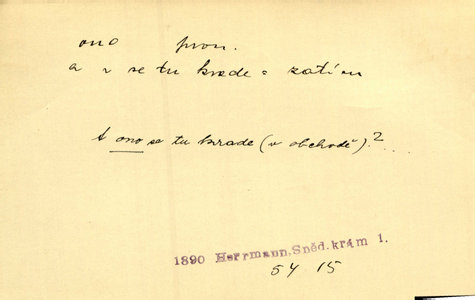 ono pron.
a v se tu krade = zatím
A ono se tu krade (v obchodě)? ...
1890 Herrmann, Sněd. krám 1.
54 15